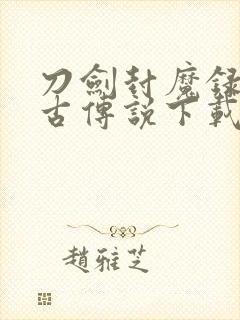 刀劍封魔錄
古傳説下載
趙雅芝